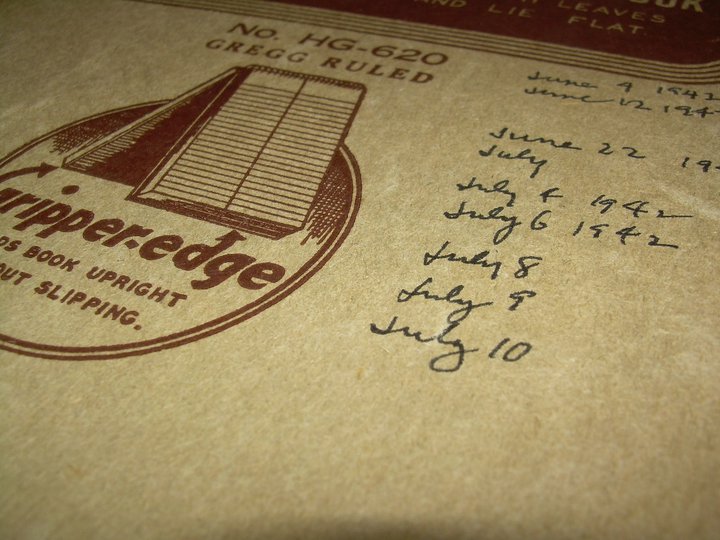 LEAVES
AND LIE FLAT.
No. HG-620
GREGG RULED
gripper-edge
DS BOOK UPRIGHT
OUT SLIPPING.
June 9 1942
June 12 194
June 22 19
July
July 4 1942
July 6 1942
July 8
July 9
July 10